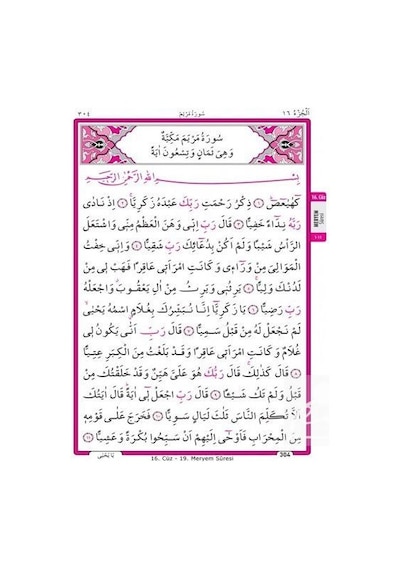 ٣٠٤ سُورَةُ مَرْيَمَ اَلْجُزْءُ ١٦
سُورَةُ مَرْيَمَ مَكِّيَّةٌ
وَهِىَ ثَمَانٍ وَتِسْعُونَ اٰيَةً
بِسْمِ اللّٰهِ الرَّحْمٰنِ الرَّحِيمِ
كۤهٰيٰعۤصۤ ﴿١﴾ ذِكْرُ رَحْمَتِ رَبِّكَ عَبْدَهُ زَكَرِيَّا ﴿٢﴾ اِذْ نَادٰى
رَبَّهُ نِدَٓاءً خَفِيًّا ﴿٣﴾ قَالَ رَبِّ اِنّٖى وَهَنَ الْعَظْمُ مِنّٖى وَاشْتَعَلَ
الرَّاْسُ شَيْبًا وَلَمْ اَكُنْ بِدُعَٓائِكَ رَبِّ شَقِيًّا ﴿٤﴾ وَاِنّٖى خِفْتُ
الْمَوَالِىَ مِنْ وَرَٓاءٖى وَكَانَتِ امْرَاَتٖى عَاقِرًا فَهَبْ لٖى مِنْ
لَدُنْكَ وَلِيًّا ﴿٥﴾ يَرِثُنٖى وَيَرِثُ مِنْ اٰلِ يَعْقُوبَ وَاجْعَلْهُ
رَبِّ رَضِيًّا ﴿٦﴾ يَا زَكَرِيَّٓا اِنَّا نُبَشِّرُكَ بِغُلَامٍ اسْمُهُ يَحْيٰى
لَمْ نَجْعَلْ لَهُ مِنْ قَبْلُ سَمِيًّا ﴿٧﴾ قَالَ رَبِّ اَنّٰى يَكُونُ لٖى
غُلَامٌ وَكَانَتِ امْرَاَتٖى عَاقِرًا وَقَدْ بَلَغْتُ مِنَ الْكِبَرِ عِتِيًّا
﴿٨﴾ قَالَ كَذٰلِكَ قَالَ رَبُّكَ هُوَ عَلَىَّ هَيِّنٌ وَقَدْ خَلَقْتُكَ مِنْ
قَبْلُ وَلَمْ تَكُ شَيْئًا ﴿٩﴾ قَالَ رَبِّ اجْعَلْ لٖٓى اٰيَةً قَالَ اٰيَتُكَ
اَلَّا تُكَلِّمَ النَّاسَ ثَلٰثَ لَيَالٍ سَوِيًّا ﴿١٠﴾ فَخَرَجَ عَلٰى قَوْمِهٖ
مِنَ الْمِحْرَابِ فَاَوْحٰٓى اِلَيْهِمْ اَنْ سَبِّحُوا بُكْرَةً وَعَشِيًّا ﴿١١﴾
يَا يَحْيٰى 16. Cüz - 19. Meryem Sûresi 304
16. Cüz
MERYEM
Sûresi